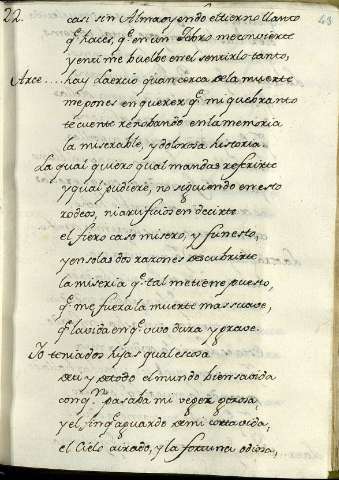 22. 43
casi sin Alma oyendo el tierno llanto
q̃ haces, q̃ en un Mar me convierte
y en ti me buelbe en el sentirlo tanto,
Arce... hay Laercio quan cerca de la muerte
me pones en querer q̃ mi quebranto
te cuente renobando en la memoria
la miserable, y dolorosa historia.
La qual quiero qual mandas referirte
y qual pudiere, no siguiendo en esto
rodeos, ni artificios en decirte
el fiero caso misero, y funesto,
y en solas dos razones descubrirte
la miseria q̃ tal me tiene puesto,
q̃ me fuera la muerte mas suave,
q̃ la vida en q̃ vivo dura y grave.
Yo tenia dos hijas qual es cosa
de ti y de todo el mundo bien savida
con q.n pasaba mi vegez gozosa,
y el fin q̃ aguardo de mi corta vida,
el Cielo airado, y la fortuna odiosa,